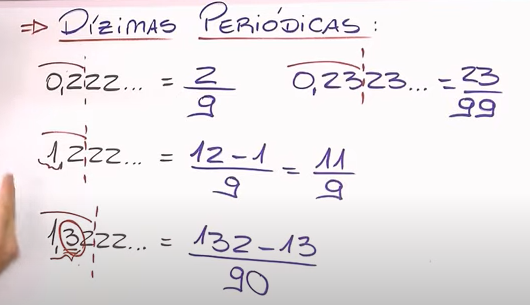 ⇒ DÍZIMAS PERIÓDICAS:
0,222... = 2/9 0,2323... = 23/99
1,222... = 12-1/9 = 11/9
1,3222... = 132-13/90